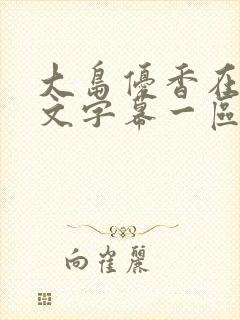 大島優香在
文字幕一區
向崔麗